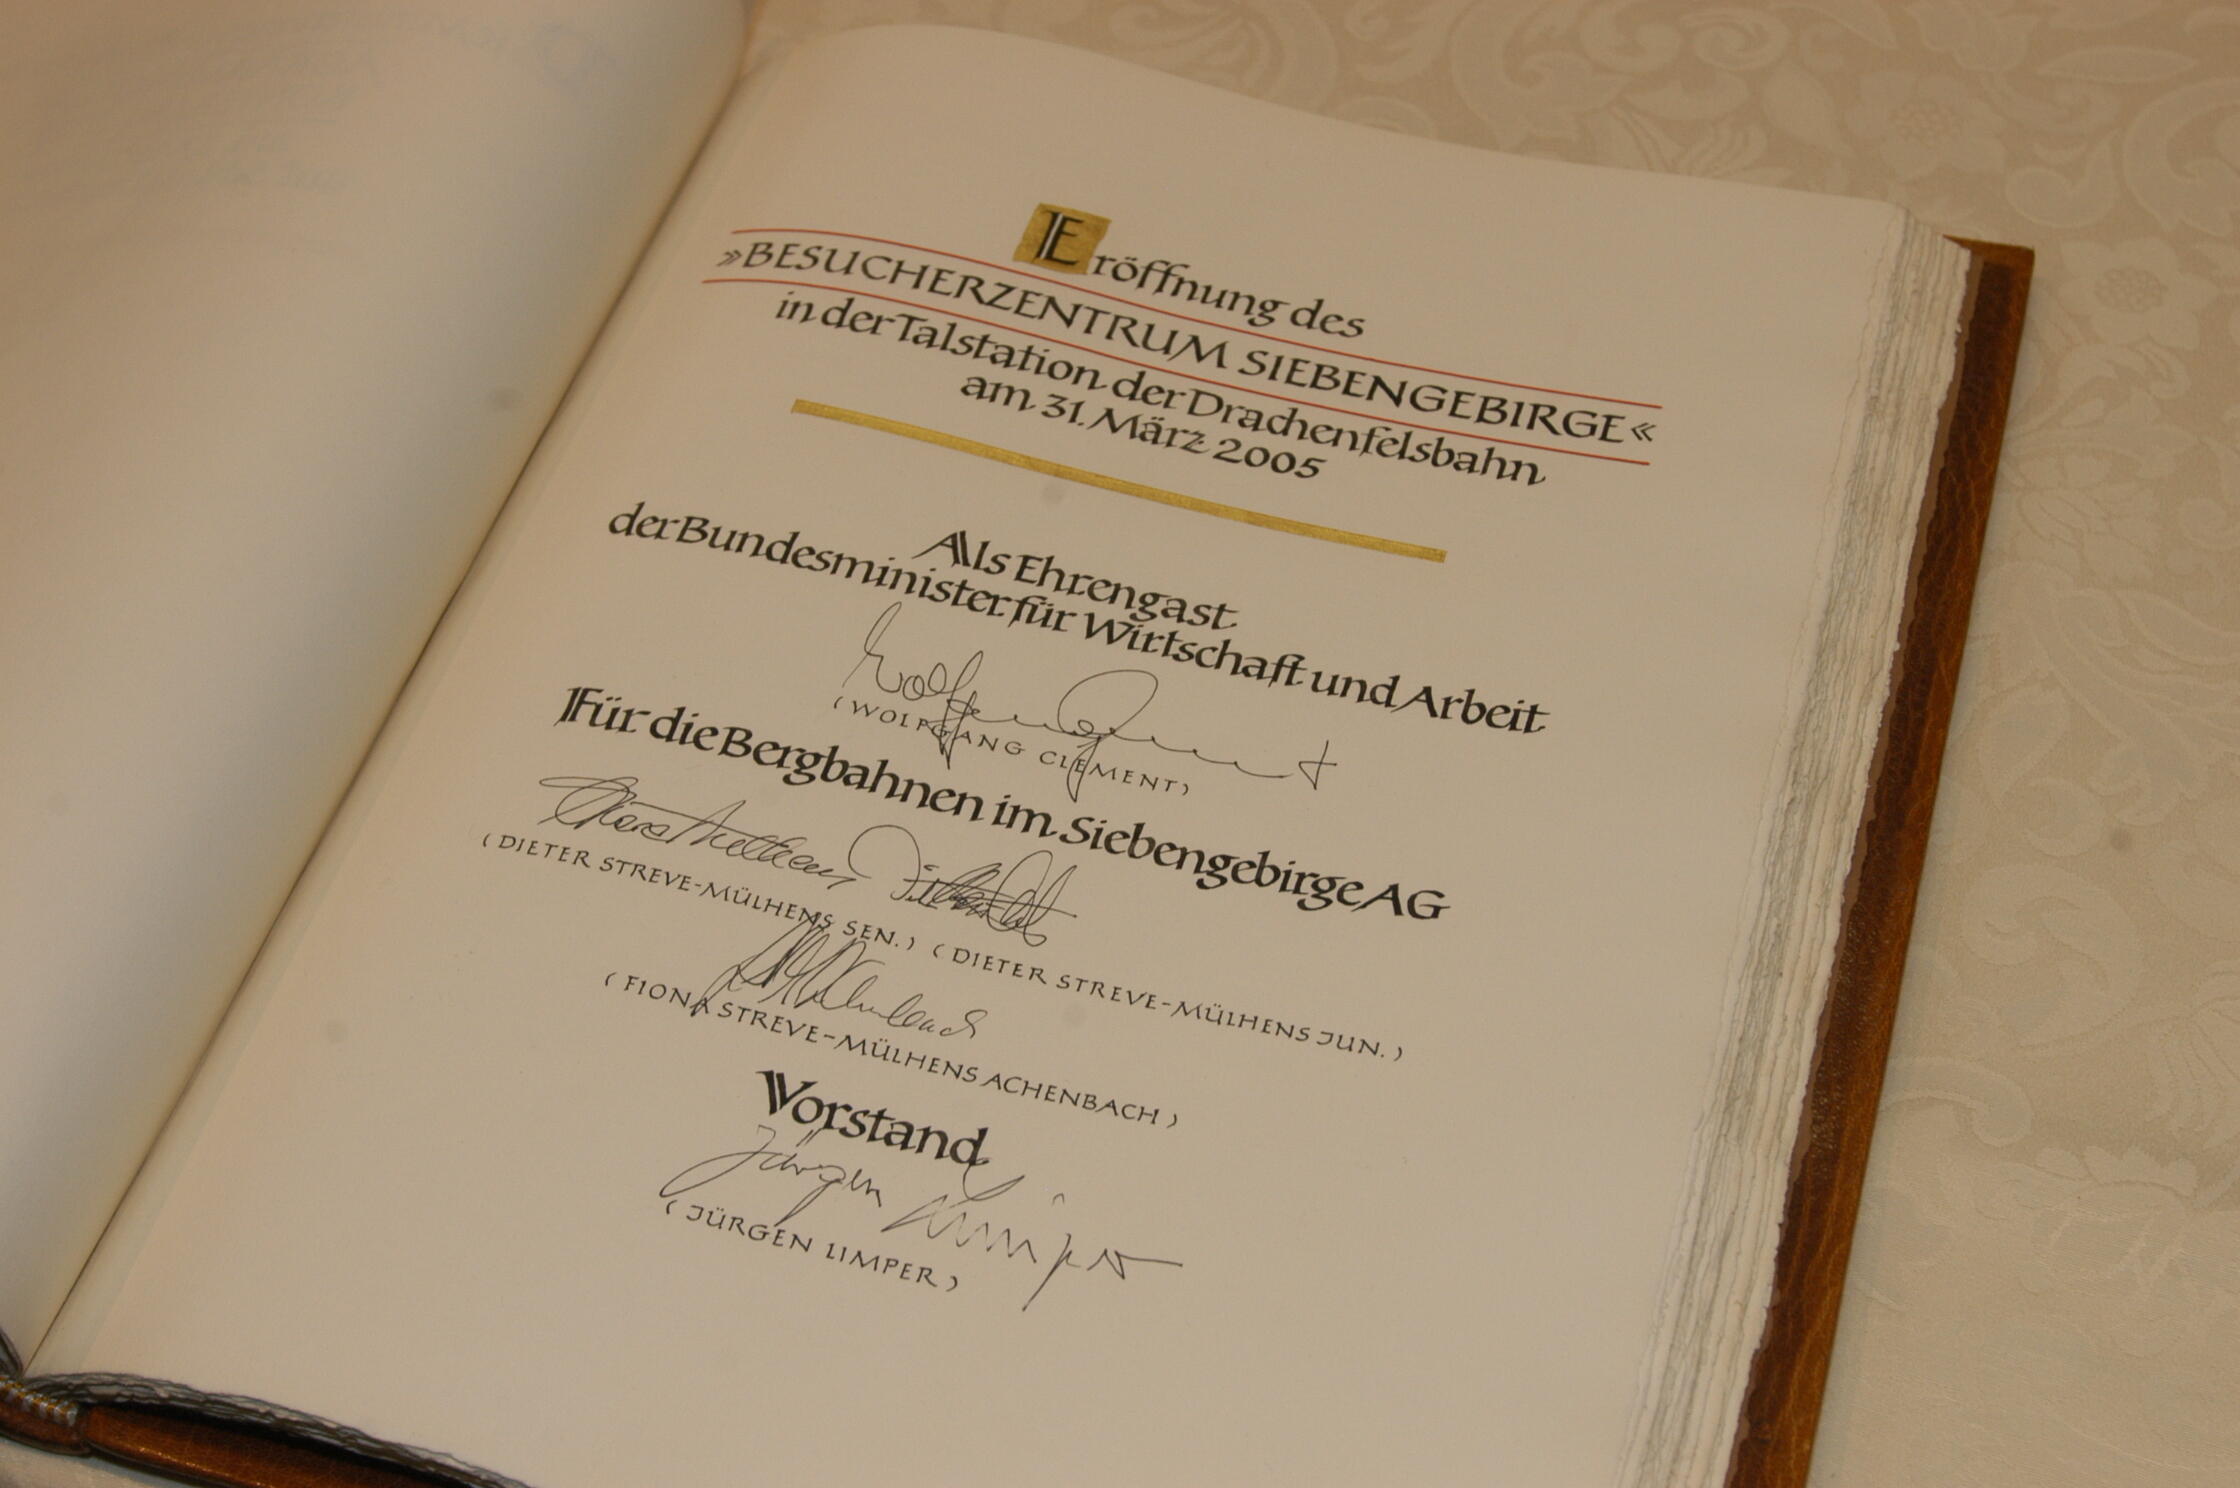 Eröffnung des
»BESUCHERZENTRUM SIEBENGEBIRGE«
in der Talstation der Drachenfelsbahn
am 31. März 2005
Als Ehrengast
der Bundesminister für Wirtschaft und Arbeit
Wolfgang Clement
(WOLFGANG CLEMENT)
Für die Bergbahnen im Siebengebirge AG
(DIETER STREVE-MÜLHENS SEN.) (DIETER STREVE-MÜLHENS JUN.)
(FIONA STREVE-MÜLHENS ACHENBACH)
Vorstand
Jürgen Limper
(JÜRGEN LIMPER)